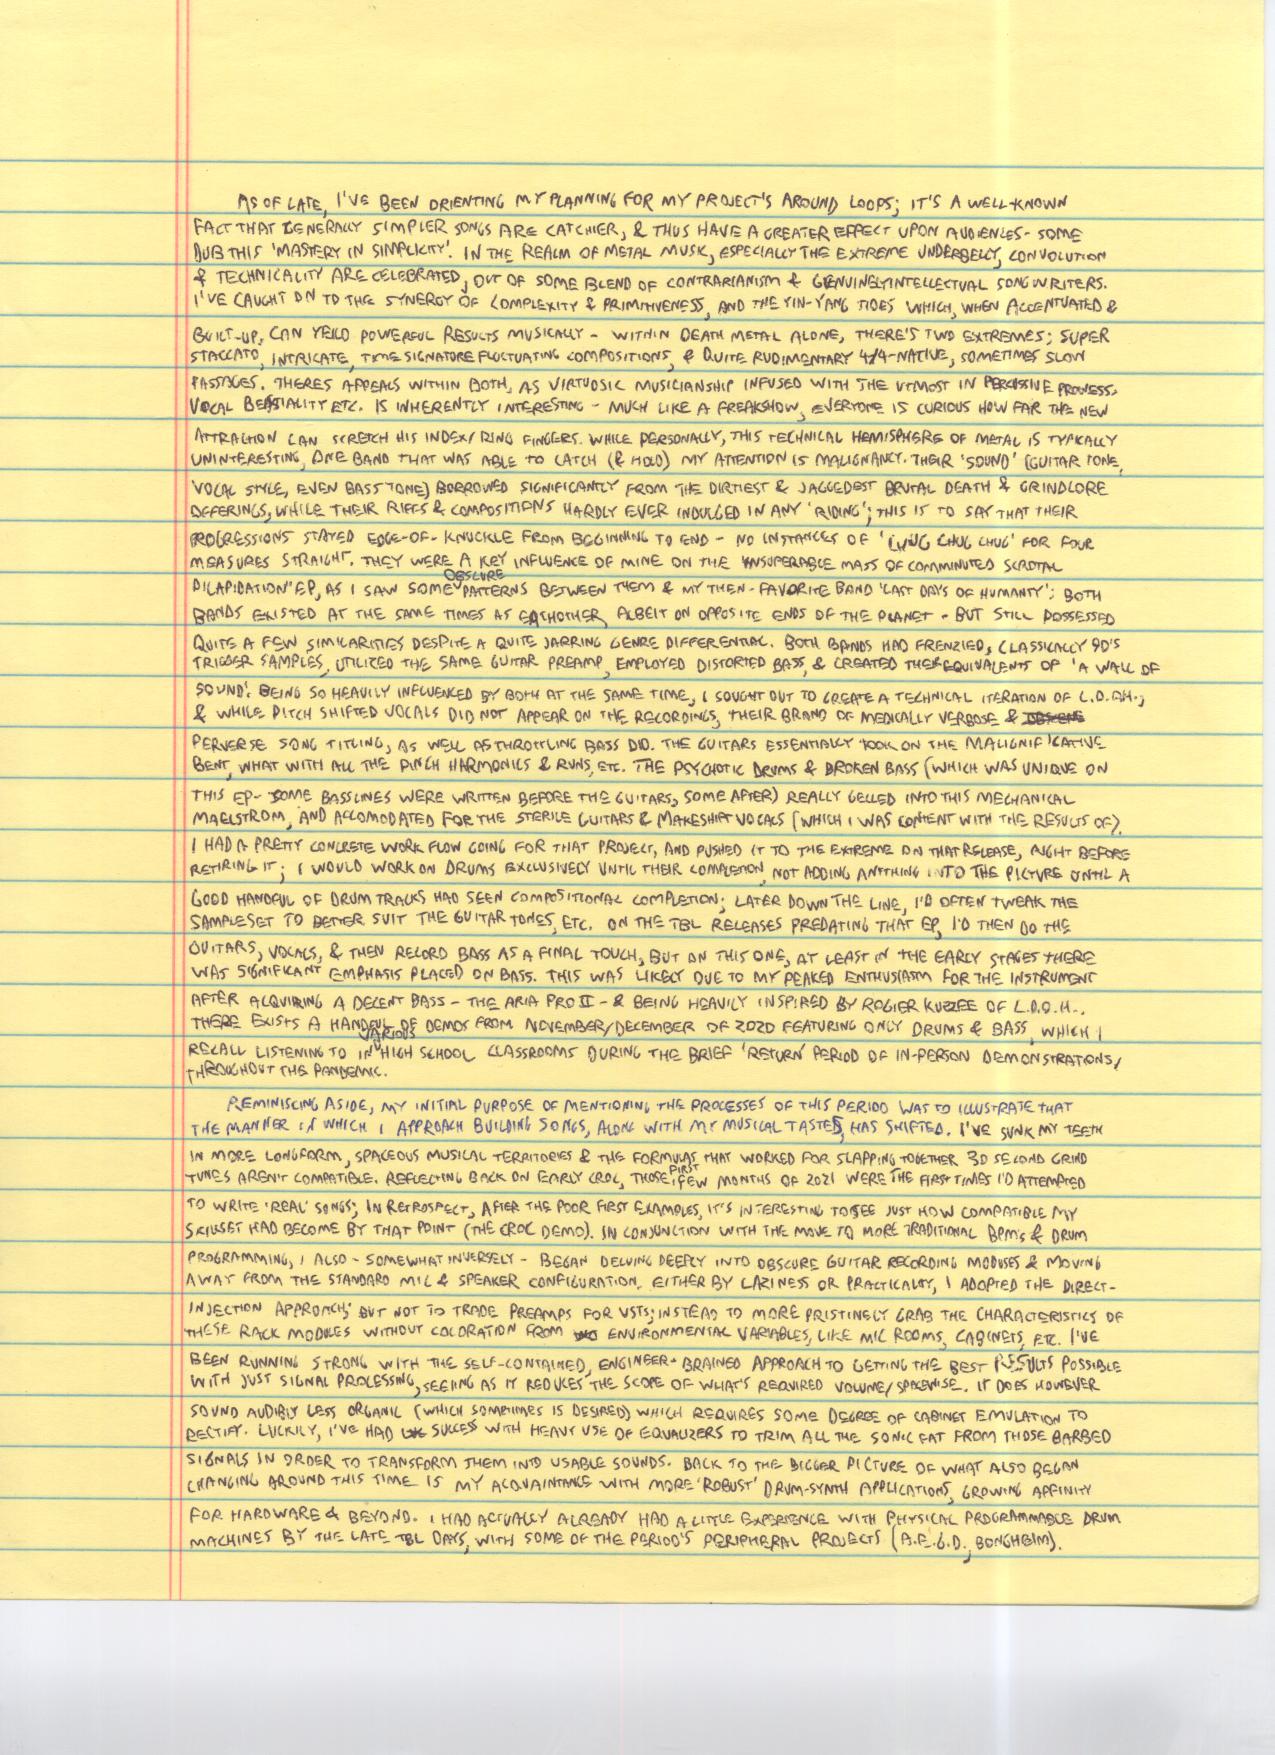 AS OF LATE, I'VE BEEN ORIENTING MY PLANNING FOR MY PROJECT'S AROUND LOOPS; IT'S A WELL-KNOWN
FACT THAT GENERALLY SIMPLER SONGS ARE CATCHIER, & THUS HAVE A GREATER EFFECT UPON AUDIENCES - SOME
DUB THIS 'MASTERY IN SIMPLICITY'. IN THE REALM OF METAL MUSIC, ESPECIALLY THE EXTREME UNDERBELLY, CONVOLUTION
& TECHNICALITY ARE CELEBRATED, OUT OF SOME BLEND OF CONTRARIANISM & GENUINELY INTELLECTUAL SONG WRITERS.
I'VE CAUGHT ON TO THE SYNERGY OF COMPLEXITY & PRIMITIVENESS, AND THE YIN-YANG TIDES WHICH, WHEN ACCENTUATED &
BUILT-UP, CAN YEILD POWERFUL RESULTS MUSICALLY - WITHIN DEATH METAL ALONE, THERE'S TWO EXTREMES; SUPER
STACCATO, INTRICATE, TIME SIGNATURE FLUCTUATING COMPOSITIONS, & QUITE RUDIMENTARY 4/4-NATIVE, SOMETIMES SLOW
PASSAGES. THERES APPEALS WITHIN BOTH, AS VIRTUOSIC MUSICIANSHIP INFUSED WITH THE UTMOST IN PERCUSSIVE PROWESS,
VOCAL BEASTIALITY ETC. IS INHERENTLY INTERESTING - MUCH LIKE A FREAKSHOW, EVERYONE IS CURIOUS HOW FAR THE NEW
ATTRACTION CAN STRETCH HIS INDEX/RING FINGERS. WHILE PERSONALLY, THIS TECHNICAL HEMISPHERE OF METAL IS TYPICALLY
UNINTERESTING, ONE BAND THAT WAS ABLE TO CATCH (& HOLD) MY ATTENTION IS MALIGNANCY. THEIR 'SOUND' (GUITAR TONE,
VOCAL STYLE, EVEN BASS TONE) BORROWED SIGNIFICANTLY FROM THE DIRTIEST & JAGGEDEST BRUTAL DEATH & GRINDCORE
OFFERINGS, WHILE THEIR RIFFS & COMPOSITIONS HARDLY EVER INDULGED IN ANY 'RIDING'; THIS IS TO SAY THAT THEIR
PROGRESSIONS STAYED EDGE-OF-KNUCKLE FROM BEGINNING TO END - NO INSTANCES OF 'CHUG CHUG CHUG' FOR FOUR
MEASURES STRAIGHT. THEY WERE A KEY INFLUENCE OF MINE ON THE INSUPERABLE MASS OF COMMINUTED SCROTAL
DILAPIDATION" EP, AS I SAW SOME OBSCURE PATTERNS BETWEEN THEM & MY THEN-FAVORITE BAND 'LAST DAYS OF HUMANTY'; BOTH
BANDS EXISTED AT THE SAME TIMES AS EACHOTHER, ALBEIT ON OPPOSITE ENDS OF THE PLANET - BUT STILL POSSESSED
QUITE A FEW SIMILARITIES DESPITE A QUITE JARRING GENRE DIFFERENTIAL. BOTH BANDS HAD FRENZIED, CLASSICALLY 90'S
TRIGGER SAMPLES, UTILIZED THE SAME GUITAR PREAMP, EMPLOYED DISTORTED BASS, & CREATED THEIR EQUIVALENTS OF 'A WALL OF
SOUND'. BEING SO HEAVILY INFLUENCED BY BOTH AT THE SAME TIME, I SOUGHT OUT TO CREATE A TECHNICAL ITERATION OF L.D.O.H.;
& WHILE PITCH SHIFTED VOCALS DID NOT APPEAR ON THE RECORDINGS, THEIR BRAND OF MEDICALLY VERBOSE &
PERVERSE SONG TITLING, AS WELL AS THROTTLING BASS DID. THE GUITARS ESSENTIALLY TOOK ON THE MALIGNIFICATIVE
BENT, WHAT WITH ALL THE PINCH HARMONICS & RUNS, ETC. THE PSYCHOTIC DRUMS & BROKEN BASS (WHICH WAS UNIQUE ON
THIS EP - SOME BASSLINES WERE WRITTEN BEFORE THE GUITARS, SOME AFTER) REALLY GELLED INTO THIS MECHANICAL
MAELSTROM, AND ACCOMODATED FOR THE STERILE GUITARS & MAKESHIFT VOCALS (WHICH I WAS CONTENT WITH THE RESULTS OF).
I HAD A PRETTY CONCRETE WORK FLOW GOING FOR THAT PROJECT, AND PUSHED IT TO THE EXTREME ON THAT RELEASE, RIGHT BEFORE
RETIRING IT; I WOULD WORK ON DRUMS EXCLUSIVELY UNTIL THEIR COMPLETION, NOT ADDING ANYTHING INTO THE PICTURE UNTIL A
GOOD HANDFUL OF DRUM TRACKS HAD SEEN COMPOSITIONAL COMPLETION; LATER DOWN THE LINE, I'D OFTEN TWEAK THE
SAMPLESET TO BETTER SUIT THE GUITAR TONES, ETC. ON THE TBL RELEASES PREDATING THAT EP, I'D THEN DO THE
GUITARS, VOCALS, & THEN RECORD BASS AS A FINAL TOUCH, BUT ON THIS ONE, AT LEAST IN THE EARLY STAGES THERE
WAS SIGNIFICANT EMPHASIS PLACED ON BASS. THIS WAS LIKELY DUE TO MY PEAKED ENTHUSIASM FOR THE INSTRUMENT
AFTER ACQUIRING A DECENT BASS - THE ARIA PRO II - & BEING HEAVILY INSPIRED BY ROGIER KUZEE OF L.D.O.H..
THERE EXISTS A HANDFUL OF DEMOS FROM NOVEMBER/DECEMBER OF 2020 FEATURING ONLY DRUMS & BASS, WHICH I
RECALL LISTENING TO IN VARIOUS HIGH SCHOOL CLASSROOMS DURING THE BRIEF 'RETURN' PERIOD OF IN-PERSON DEMONSTRATIONS,
THROUGHOUT THE PANDEMIC.
REMINISCING ASIDE, MY INITIAL PURPOSE OF MENTIONING THE PROCESSES OF THIS PERIOD WAS TO ILLUSTRATE THAT
THE MANNER IN WHICH I APPROACH BUILDING SONGS, ALONG WITH MY MUSICAL TASTES, HAS SHIFTED. I'VE SUNK MY TEETH
IN MORE LONGFORM, SPACEOUS MUSICAL TERRITORIES & THE FORMULAS THAT WORKED FOR SLAPPING TOGETHER 30 SECOND GRIND
TUNES AREN'T COMPATIBLE. REFLECTING BACK ON EARLY CROC, THOSE FIRST FEW MONTHS OF 2021 WERE THE FIRST TIMES I'D ATTEMPTED
TO WRITE 'REAL' SONGS; IN RETROSPECT, AFTER THE POOR FIRST EXAMPLES, IT'S INTERESTING TO SEE JUST HOW COMPATIBLE MY
SKILLSET HAD BECOME BY THAT POINT (THE CROC DEMO). IN CONJUNCTION WITH THE MOVE TO MORE TRADITIONAL BPM'S & DRUM
PROGRAMMING, I ALSO - SOMEWHAT INVERSELY - BEGAN DELVING DEEPLY INTO OBSCURE GUITAR RECORDING MODUSES & MOVING
AWAY FROM THE STANDARD MIC & SPEAKER CONFIGURATION. EITHER BY LAZINESS OR PRACTICALITY, I ADOPTED THE DIRECT-
INJECTION APPROACH; BUT NOT TO TRADE PREAMPS FOR VSTS; INSTEAD TO MORE PRISTINELY GRAB THE CHARACTERISTICS OF
THESE RACK MODULES WITHOUT COLORATION FROM ENVIRONMENTAL VARIABLES, LIKE MIC ROOMS, CABINETS, ETC. I'VE
BEEN RUNNING STRONG WITH THE SELF-CONTAINED, ENGINEER-BRAINED APPROACH TO GETTING THE BEST RESULTS POSSIBLE
WITH JUST SIGNAL PROCESSING, SEEING AS IT REDUCES THE SCOPE OF WHAT'S REQUIRED VOLUME/SPACEWISE. IT DOES HOWEVER
SOUND AUDIBLY LESS ORGANIC (WHICH SOMETIMES IS DESIRED) WHICH REQUIRES SOME DEGREE OF CABINET EMULATION TO
RECTIFY. LUCKILY, I'VE HAD SUCCESS WITH HEAVY USE OF EQUALIZERS TO TRIM ALL THE SONIC FAT FROM THOSE BARBED
SIGNALS IN ORDER TO TRANSFORM THEM INTO USABLE SOUNDS. BACK TO THE BIGGER PICTURE OF WHAT ALSO BEGAN
CHANGING AROUND THIS TIME IS MY ACQUAINTANCE WITH MORE 'ROBUST' DRUM-SYNTH APPLICATIONS, GROWING AFFINITY
FOR HARDWARE & BEYOND. I HAD ACTUALLY ALREADY HAD A LITTLE EXPERIENCE WITH PHYSICAL PROGRAMMABLE DRUM
MACHINES BY THE LATE TBL DAYS, WITH SOME OF THE PERIOD'S PERIPHERAL PROJECTS (A.E.G.D., BONGHEIM).